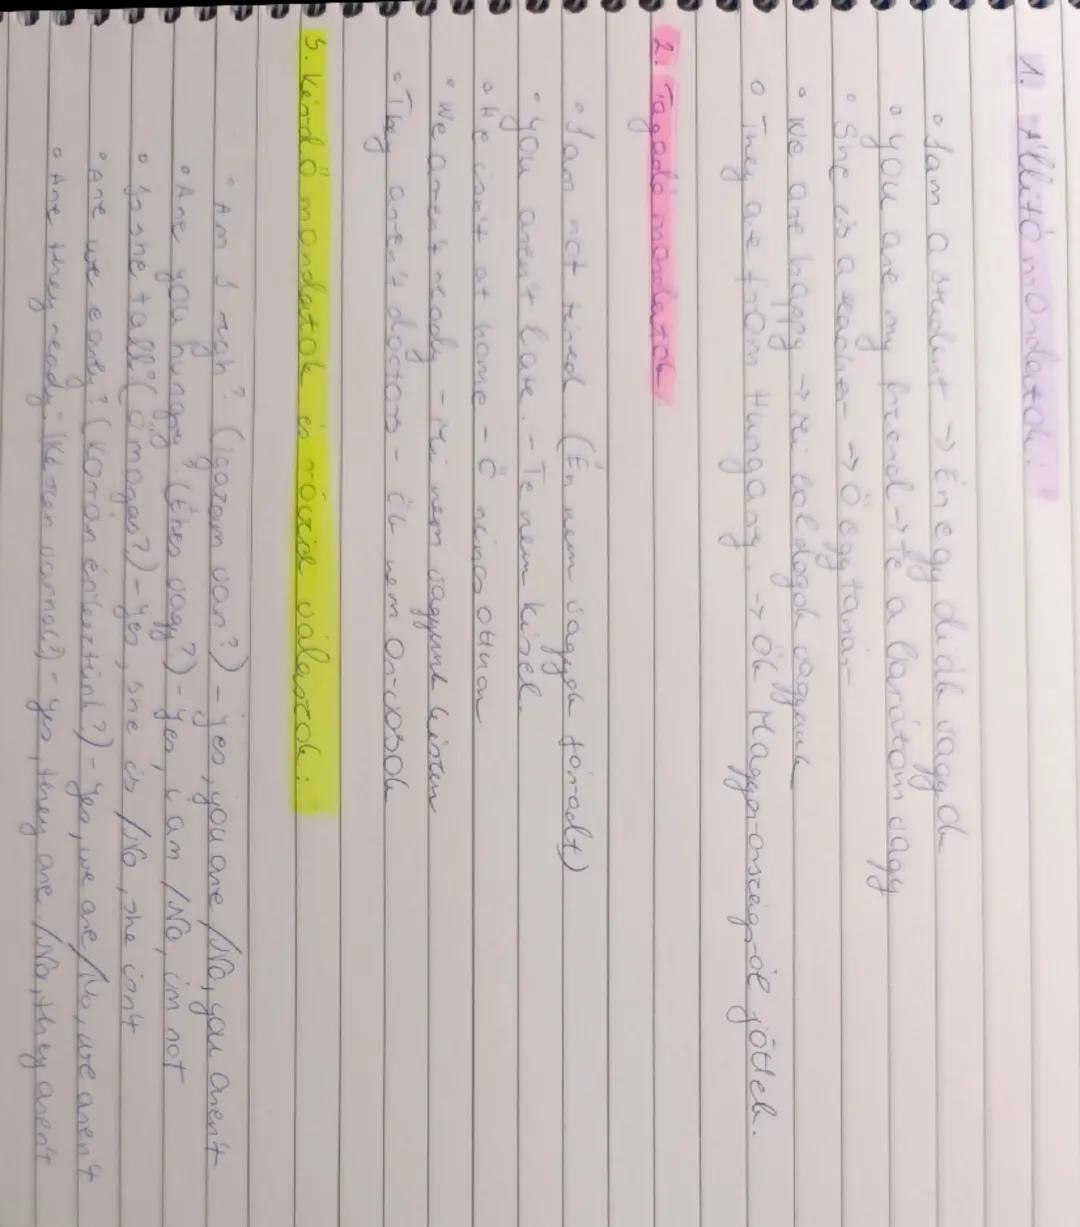 1. Állító mondatok:
• I am a student → Én egy diák vagyok
• you are my friend → Te a barátom vagy
• She is a teacher → Ő egy tanár
• We are happy → Mi boldogok vagyunk
• They are from Hungary. → Ők Magyarországról jöttek.
2. Tagadó mondatok
• I am not tired. (Én nem vagyok fáradt)
• you aren't late. - Te nem késel.
• He isn't at home - Ő nincs otthon
• We aren't ready - Mi nem vagyunk készen
• They aren't doctors - Ők nem orvosok
3. Kérdő mondatok és rövid válaszok:
• Am I righ? (Igazam van?) - yes, you are /No, you arent
• Are you hungry? (Éhes vagy?) - yes, i am /No, im not
• Is she tall? (Ő magas?) - yes, she is /No, she isnt
• Are we early? (Korán érkeztünk?) - yes, we are /No, we arent
• Are they ready - (Készen vannak?) - yes, they are. /No, they arent